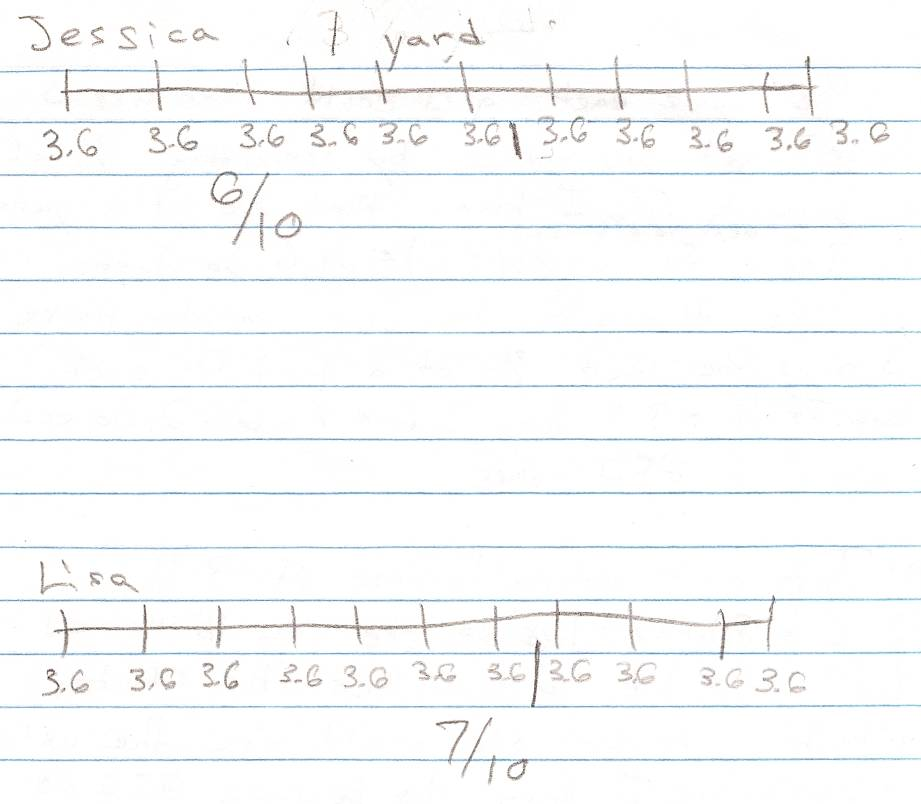 Jessica 1 yard
3.6 3.6 3.6 3.6 3.6 3.6 | 3.6 3.6 3.6 3.6 3.6
6/10
Lisa
3.6 3.6 3.6 3.6 3.6 3.6 3.6 | 3.6 3.6 3.6 3.6
7/10